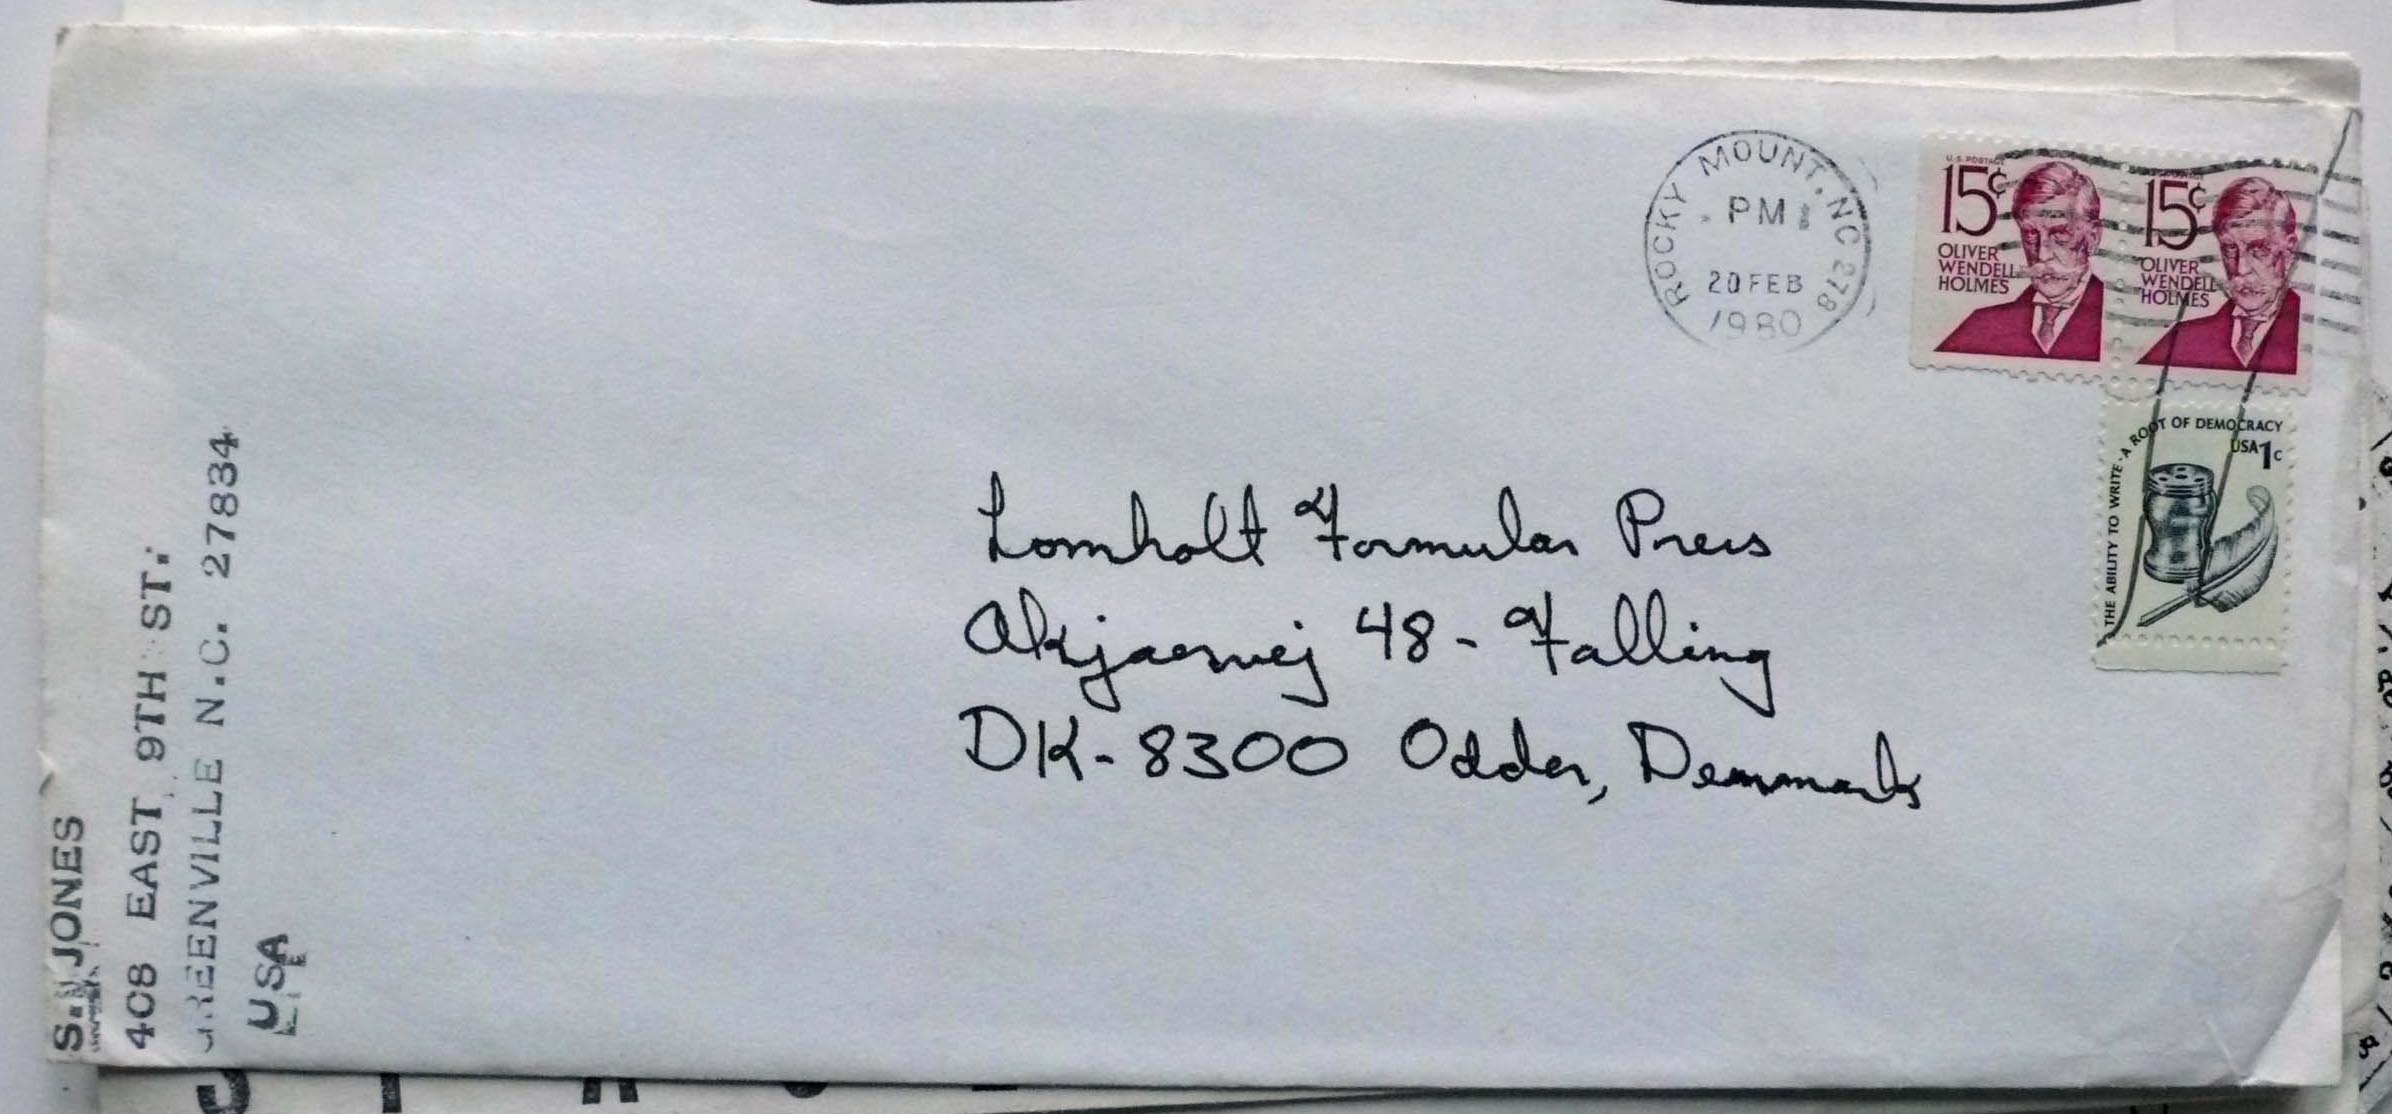 S. N. JONES
408 EAST 9TH ST.
GREENVILLE N.C. 27834
USA
ROCKY MOUNT, NC 278
PM
20 FEB
1980
U.S. POSTAGE
15¢
OLIVER
WENDELL
HOLMES
15¢
OLIVER
WENDELL
HOLMES
THE ABILITY TO WRITE · A ROOT OF DEMOCRACY
USA 1c
Lomholt Formular Press
Akjaervej 48 - Falling
DK-8300 Odder, Denmark